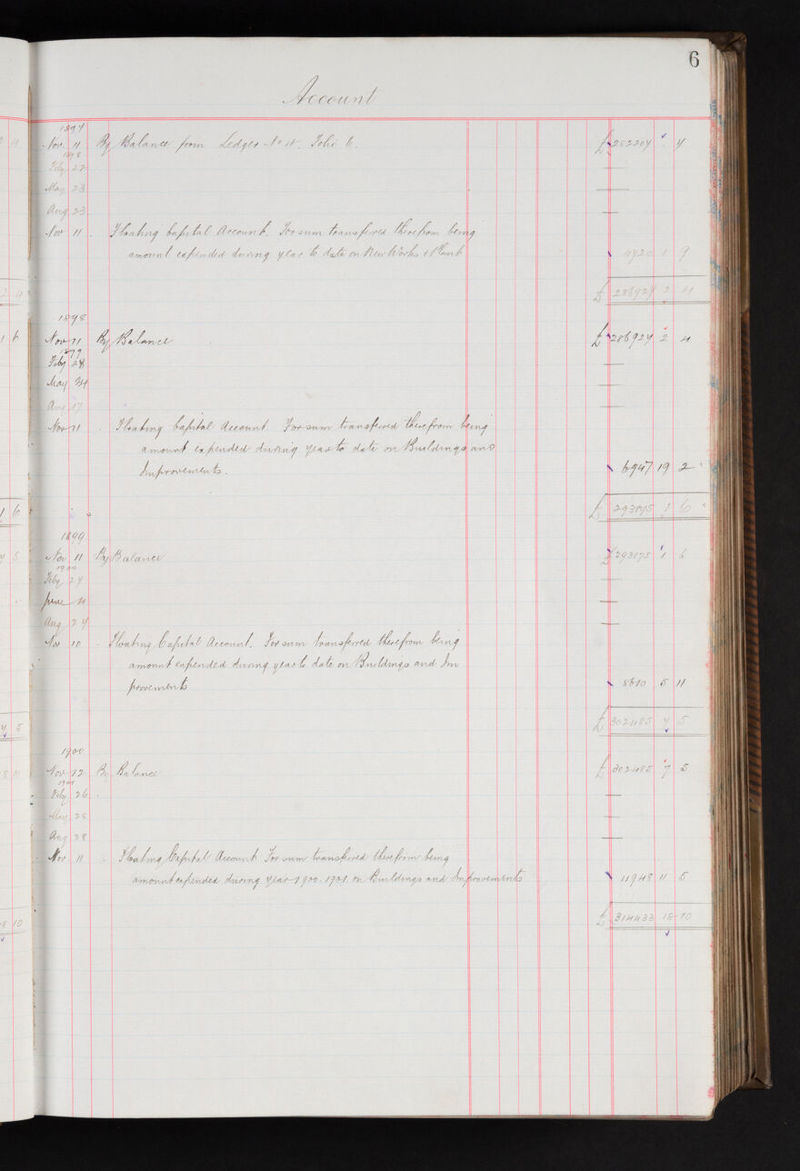 6
Account
1897
Nov 11 By Balance from Ledger No Folio 6. £282207 " 7
1898
Feby 22 —
May 23 —
Aug 23 —
Nov 11 . Floating Capital Account. For sum transferred therefrom being
amount expended during year to date on New Works & Plant 4720 1 9
£ 286927 2 4
1898
Nov 11 By Balance £286927 2 4
1899
Feby 28 —
May —
Aug 17 —
Nov 11 . Floating Capital Account. For sum transferred therefrom being
amount expended during year to date on Buildings and
Improvements. 6947 19 2
£ 293875 1 6
1899
Nov 11 By Balance £293875 1 6
1900
Feby 27
June —
Aug 27 —
Nov 10 . Floating Capital Account. For sum transferred therefrom being
amount expended during year to date on Buildings and Im
provements 8610 5 11
£ 302485 7 5
1900
Nov 12 By Balance £ 302485 7 5
1901
Feby 26 —
May —
Aug 28 —
Nov 11 Floating Capital Account For sum transferred therefrom being
amount expended during year 1900.1901. on Buildings and Improvements 11948 11 5
£ 314433 18 10